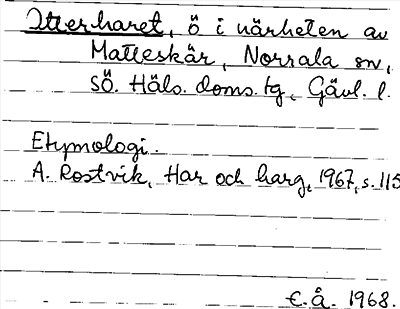 Ytterharet, ö i närheten av
Malleskär, Norrala sn,
SÖ. Häls. doms. tg, Gävl. l.
Etymologi.
A. Rostvik, Har och harg, 1967, s. 115
E. Å. 1968.